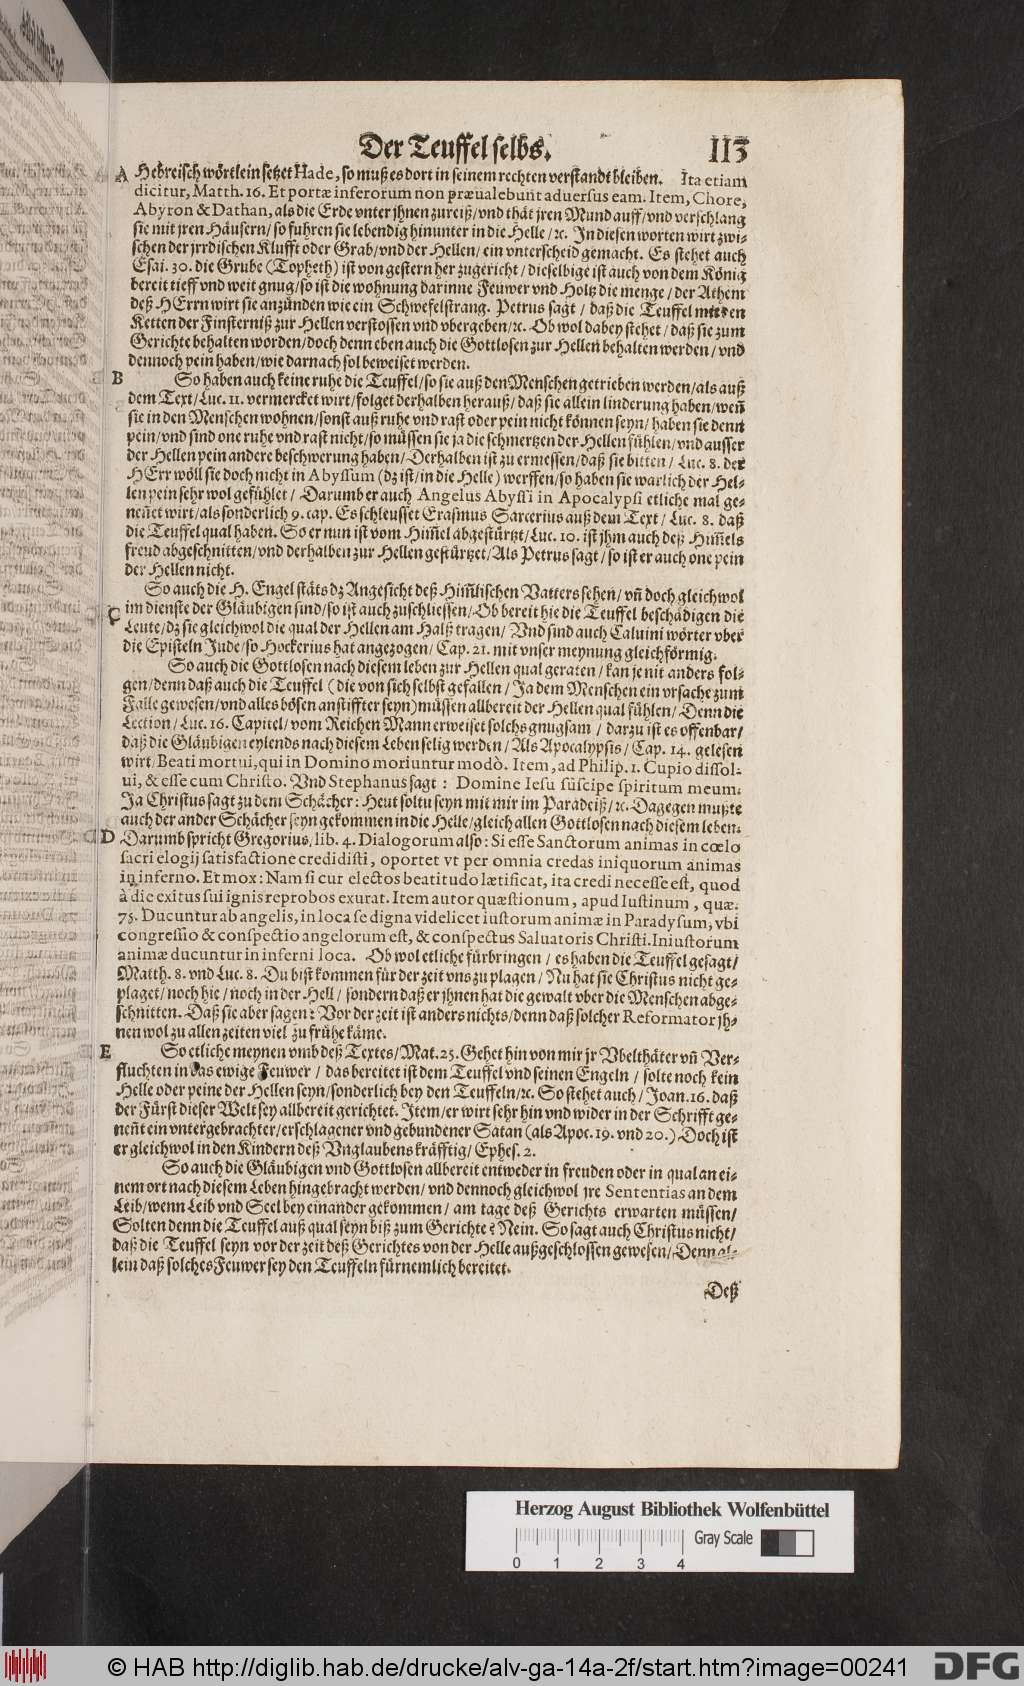 Der Teuffel selbs. 113
A Hebreisch wörtlein setzet Hade, so muß es dort in seinem rechten verstandt bleiben. Ita etiam
dicitur, Matth. 16. Et portæ inferorum non præualebunt aduersus eam. Item, Chore,
Abyron & Dathan, als die Erde vnter jhnen zureiß/vnd thät jren Mund auff/vnd verschlang
sie mit jren Häusern/so fuhren sie lebendig hinunter in die Helle/ꝛc. In diesen worten wirt zwi-
schen der jrrdischen Klufft oder Grab/vnd der Hellen/ein vnterscheid gemacht. Es stehet auch
Esai. 30. die Grube (Topheth) ist von gestern her zugericht/dieselbige ist auch von dem König
bereit tieff vnd weit gnug/so ist die wohnung darinne Feuwer vnd Holtz die menge/der Athem
deß HErrn wirt sie anzünden wie ein Schwefelstrang. Petrus sagt/daß die Teuffel mit den
Ketten der Finsterniß zur Hellen verstossen vnd vbergeben/ꝛc. Ob wol dabey stehet/daß sie zum
Gerichte behalten worden/doch denn eben auch die Gottlosen zur Hellen behalten werden/vnd
dennoch pein haben/wie darnach sol beweiset werden.
B So haben auch keine ruhe die Teuffel/so sie auß den Menschen getrieben werden/als auß
dem Text/Luc. 11. vermercket wirt/folget derhalben herauß/daß sie allein linderung haben/weñ
sie in den Menschen wohnen/sonst auß ruhe vnd rast oder pein nicht können seyn/haben sie denn
pein/vnd sind one ruhe vnd rast nicht/so müssen sie ja die schmertzen der Hellen fühlen/vnd ausser
der Hellen pein andere beschwerung haben/Derhalben ist zu ermessen/daß sie bitten/Luc. 8. der
HErr wöll sie doch nicht in Abyssum (dz ist/in die Helle) werffen/so haben sie warlich der Hel-
len pein sehr wol gefühlet/Darumb er auch Angelus Abyssi in Apocalypsi etliche mal ge-
neñet wirt/als sonderlich 9. cap. Es schleusset Erasmus Sarcerius auß dem Text/Luc. 8. daß
die Teuffel qual haben. So er nun ist vom Him̃el abgestürtzt/Luc. 10. ist jhm auch deß Him̃els
freud abgeschnitten/vnd derhalben zur Hellen gestürtzet/Als Petrus sagt/so ist er auch one pein
der Hellen nicht.
So auch die H. Engel stäts dz Angesicht deß Him̃lischen Vatters sehen/vñ doch gleichwol
C im dienste der Gläubigen sind/so ist auch zuschliessen/Ob bereit hie die Teuffel beschädigen die
Leute/dz sie gleichwol die qual der Hellen am Halß tragen/Vnd sind auch Caluini wörter vber
die Episteln Jude/so Hockerius hat angezogen/Cap. 21. mit vnser meynung gleichförmig.
So auch die Gottlosen nach diesem leben zur Hellen qual geraten/kan je nit anders fol-
gen/denn daß auch die Teuffel (die von sich selbst gefallen/Ja dem Menschen ein vrsache zum
Falle gewesen/vnd alles bösen anstiffter seyn) müssen allbereit der Hellen qual fühlen/Denn die
Lection/Luc. 16. Capitel/vom Reichen Mann erweiset solchs gnugsam/darzu ist es offenbar/
daß die Gläubigen eylends nach diesem Leben selig werden/Als Apocalypsis/Cap. 14. gelesen
wirt/Beati mortui, qui in Domino moriuntur modò. Item, ad Philip. 1. Cupio dissol-
ui, & esse cum Christo. Vnd Stephanus sagt: Domine Iesu suscipe spiritum meum.
Ja Christus sagt zu dem Schächer: Heut soltu seyn mit mir im Paradeiß/ꝛc. Dagegen mußte
auch der ander Schächer seyn gekommen in die Helle/gleich allen Gottlosen nach diesem leben.
D Darumb spricht Gregorius, lib. 4. Dialogorum also: Si esse Sanctorum animas in cœlo
sacri elogij satisfactione credidisti, oportet vt per omnia credas iniquorum animas
in inferno. Et mox: Nam si cur electos beatitudo lætificat, ita credi necesse est, quod
à die exitus sui ignis reprobos exurat. Item autor quæstionum, apud Iustinum, quæ.
75. Ducuntur ab angelis, in loca se digna videlicet iustorum animæ in Paradysum, vbi
congressio & conspectio angelorum est, & conspectus Saluatoris Christi. Iniustorum
animæ ducuntur in inferni loca. Ob wol etliche fürbringen/es haben die Teuffel gesagt/
Matth. 8. vnd Luc. 8. Du bist kommen für der zeit vns zu plagen/Nu hat sie Christus nicht ge-
plaget/noch hie/noch in der Hell/sondern daß er jhnen hat die gewalt vber die Menschen abge-
schnitten. Daß sie aber sagen: Vor der zeit ist anders nichts/denn daß solcher Reformator jh-
nen wol zu allen zeiten viel zu frühe käme.
E So etliche meynen vmb deß Textes/Mat. 25. Gehet hin von mir jr Vbelthäter vñ Ver-
fluchten in das ewige Feuwer/das bereitet ist dem Teuffel vnd seinen Engeln/solte noch kein
Helle oder peine der Hellen seyn/sonderlich bey den Teuffeln/ꝛc. So stehet auch/Joan. 16. daß
der Fürst dieser Welt sey allbereit gerichtet. Item/er wirt sehr hin vnd wider in der Schrifft ge-
neñt ein vntergebrachter/erschlagener vnd gebundener Satan (als Apoc. 19. vnd 20.) Doch ist
er gleichwol in den Kindern deß Vnglaubens kräfftig/Ephes. 2.
So auch die Gläubigen vnd Gottlosen allbereit entweder in freuden oder in qual an ei-
nem ort nach diesem Leben hingebracht werden/vnd dennoch gleichwol jre Sententias an dem
Leib/wenn Leib vnd Seel bey einander gekommen/am tage deß Gerichts erwarten müssen/
Solten denn die Teuffel auß qual seyn biß zum Gerichte? Nein. So sagt auch Christus nicht/
daß die Teuffel seyn vor der zeit deß Gerichtes von der Helle außgeschlossen gewesen/Denn al-
lein daß solches Feuwer sey den Teuffeln fürnemlich bereitet.
Deß
Herzog August Bibliothek Wolfenbüttel
Gray Scale
0 1 2 3 4
© HAB http://diglib.hab.de/drucke/alv-ga-14a-2f/start.htm?image=00241
DFG